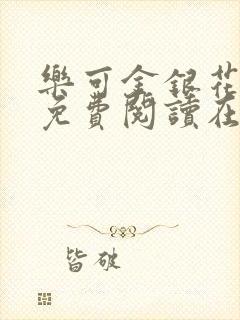 樂可金銀花
免費閱讀在
皆破